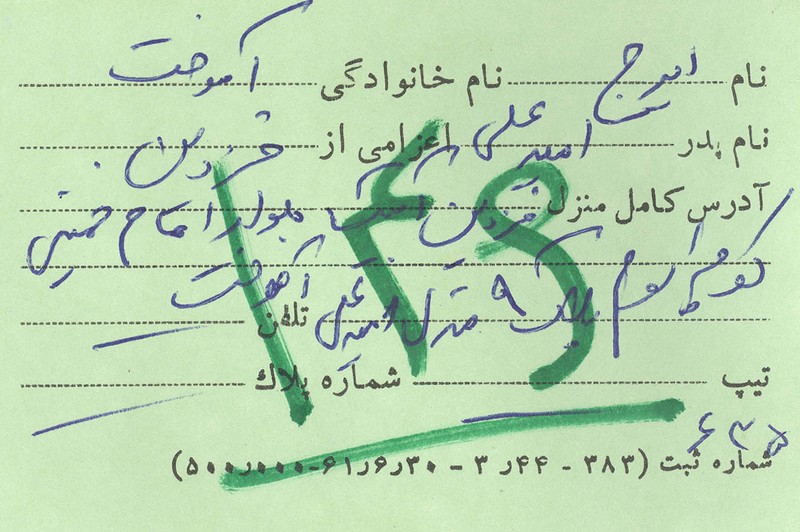 نام ایرج نام خانوادگی آموخت
نام پدر امیر علی اعزامی از قزوین
آدرس کامل منزل قزوین بلوار امام خمینی
کوچه پلاک ۹ منزل امیر علی آموخت
تلفن
تیپ شماره پلاک
۱۴۹
۶۳۵
شماره ثبت (۳۸۳ - ۴۴ر۳ - ۳۰ر۶ر۶۱-۵۰۰ر۰۰۰)